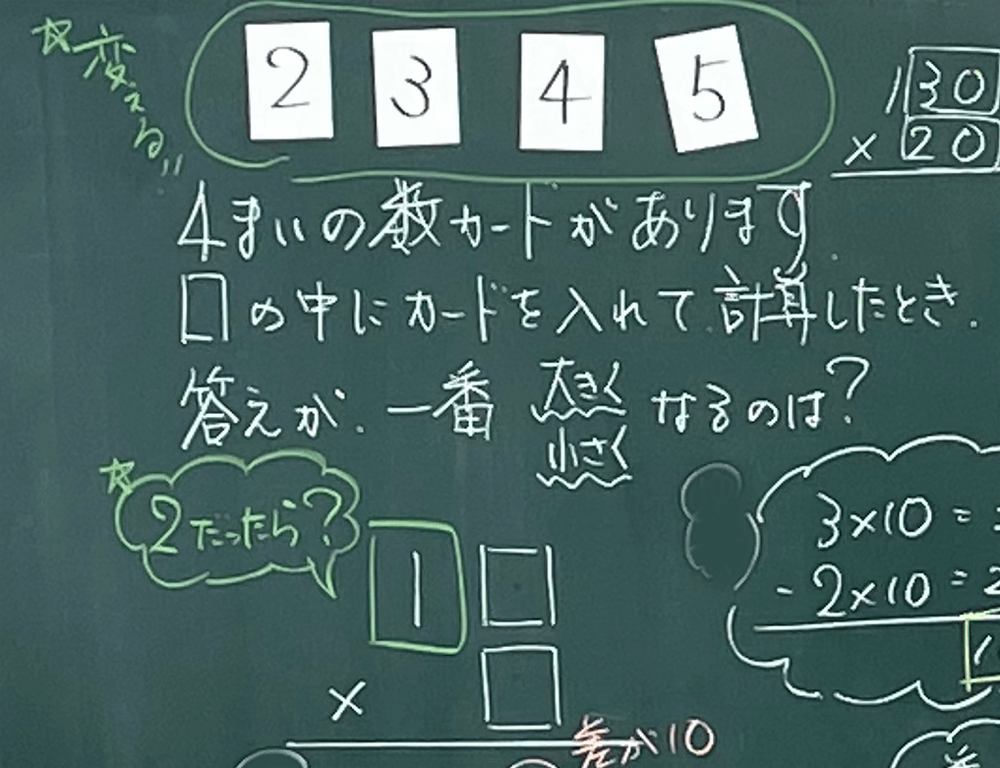 変える!!
2 3 4 5
130
× 20
4まいの数カードがあります
□の中にカードを入れて計算したとき.
答えが.一番 大きく なるのは?
小さく
2だったら?
1 □
× □
3×10=
-2×10=2
差が10